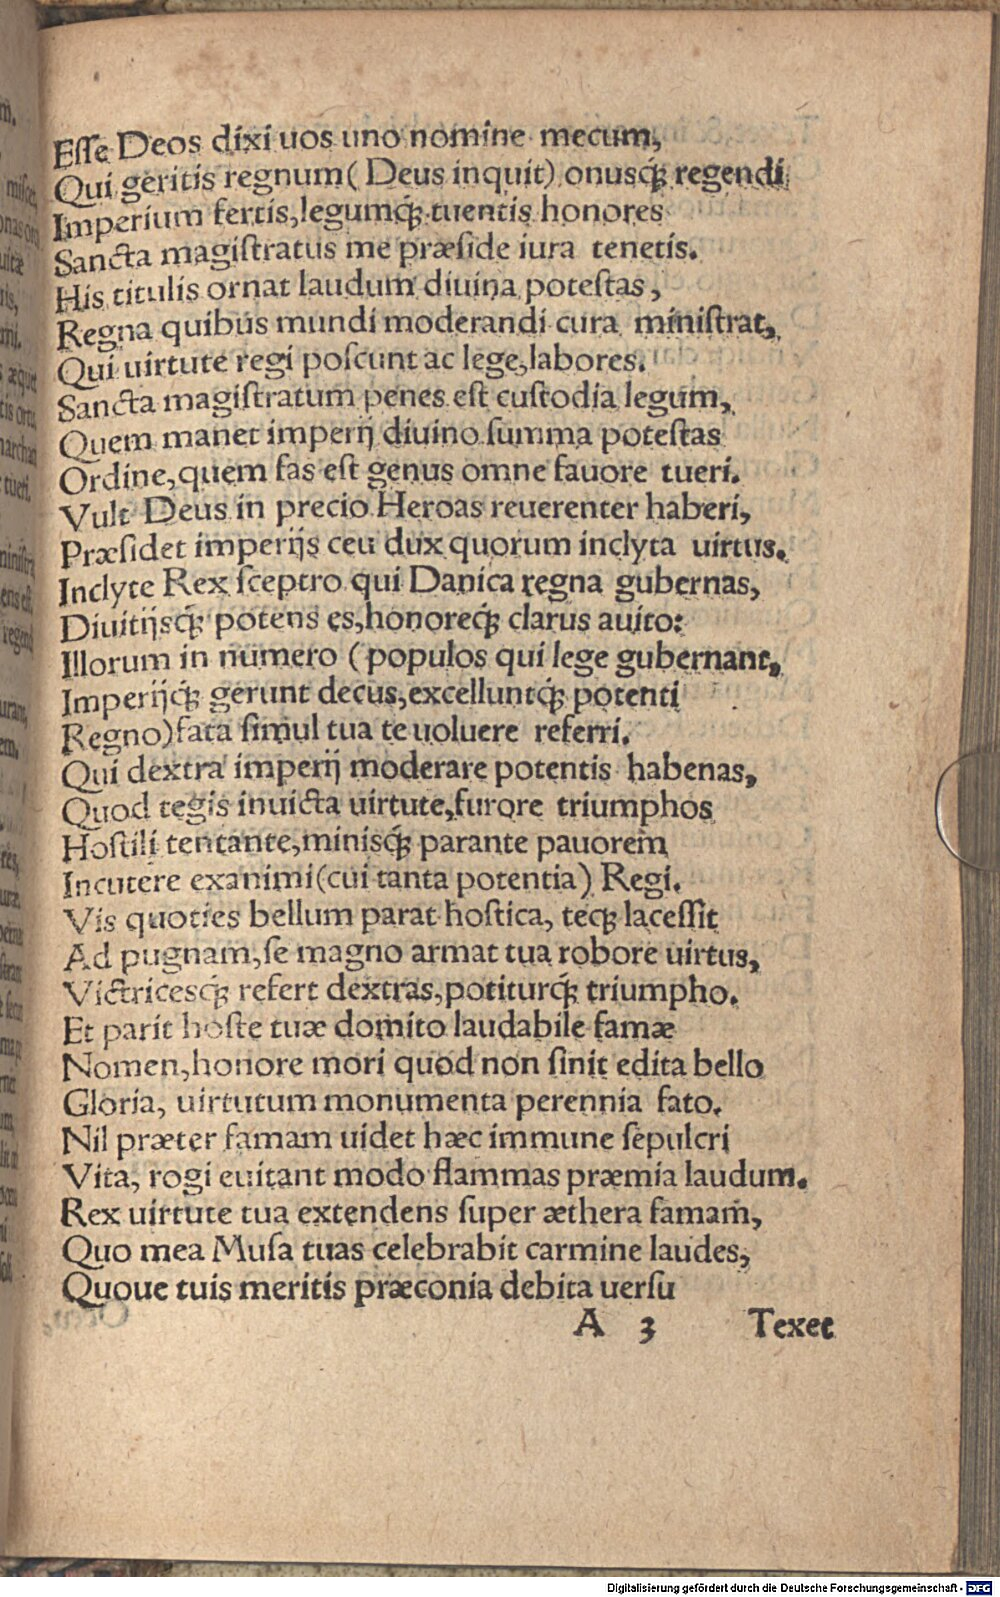 Eſſe Deos dixi uos uno nomine mecum,
Qui geritis regnum( Deus inquit) onusq́; regendi
Imperium fertis,legumq́; tuentis honores
Sancta magiſtratus me præſide iura tenetis.
His titulis ornat laudum diuina poteſtas,
Regna quibus mundi moderandi cura miniſtrat,
Qui uirtute regi poſcunt ac lege,labores.
Sancta magiſtratum penes eſt cuſtodia legum,
Quem manet imperij diuino ſumma poteſtas
Ordine,quem fas eſt genus omne fauore tueri.
Vult Deus in precio Heroas reuerenter haberi,
Præſidet imperijs ceu dux quorum inclyta uirtus.
Inclyte Rex ſceptro qui Danica regna gubernas,
Diuitijsq́; potens es,honoreq́; clarus auito:
Illorum in numero (populos qui lege gubernant,
Imperijq́; gerunt decus,excelluntq́; potenti
Regno)fata ſimul tua te uoluere referri.
Qui dextra imperij moderare potentis habenas,
Quod regis inuicta uirtute,furore triumphos
Hoſtili tentante,minisq́; parante pauorem
Incutere exanimi(cui tanta potentia) Regi.
Vis quoties bellum parat hoſtica, teq; laceſſit
Ad pugnam,ſe magno armat tua robore uirtus,
Victricesq́; refert dextras,potiturq́; triumpho.
Et parit hoſte tuæ domito laudabile famæ
Nomen,honore mori quod non ſinit edita bello
Gloria, uirtutum monumenta perennia fato.
Nil præter famam uidet hæc immune ſepulcri
Vita, rogi euitant modo flammas præmia laudum.
Rex uirtute tua extendens ſuper æthera famam,
Quo mea Muſa tuas celebrabit carmine laudes,
Quoue tuis meritis præconia debita uerſu
A 3 Texet
Digitalisierung gefördert durch die Deutsche Forschungsgemeinschaft - DFG